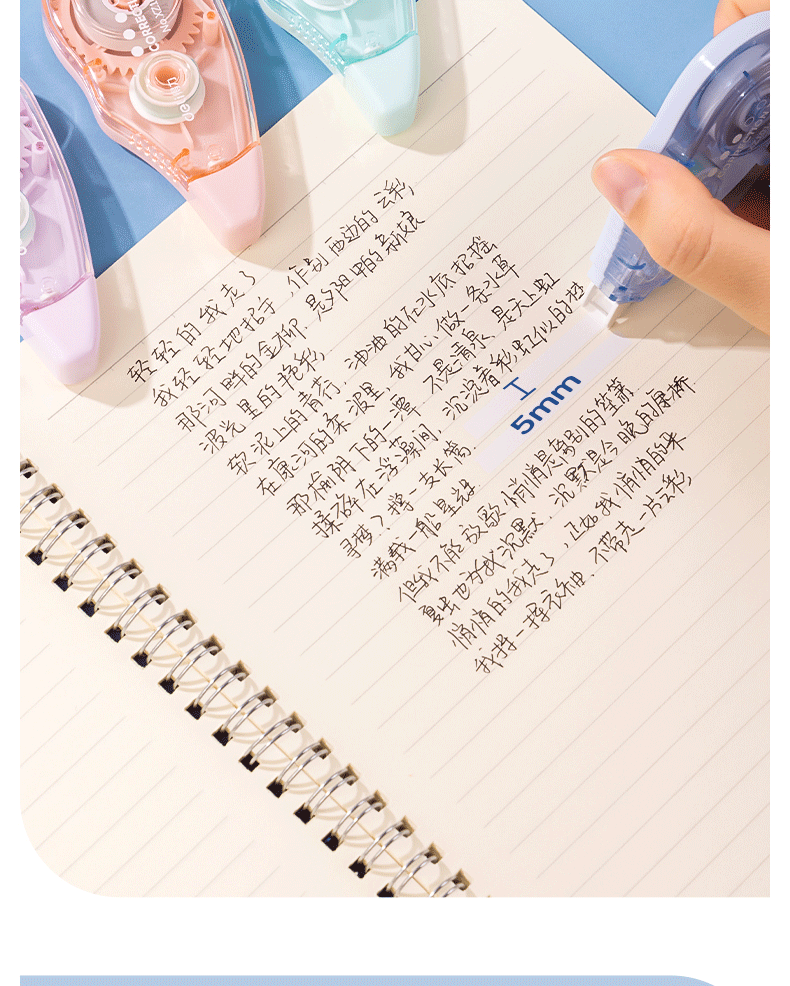 CORRECT
deli
轻轻的我走了
我轻轻地招手，作别西边的云彩
那河畔的金柳，是夕阳中的新娘
波光里的艳影，
软泥上的青荇，油油的在水底招摇
在康河的柔波里，我甘心做一条水草
那榆阴下的一潭，不是清泉，是天上虹
揉碎在浮藻间，沉淀着彩虹似的梦
寻梦？撑一支长篙
满载一船星辉
5mm
但我不能放歌 悄悄是离别的笙箫
夏虫也为我沉默，沉默是今晚的康桥
悄悄的我走了，正如我悄悄的来
我挥一挥衣袖，不带走一片云彩